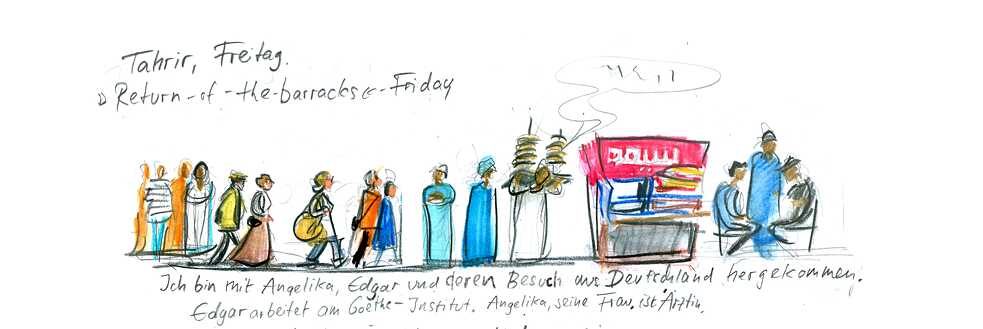 Tahrir, Freitag.
"Return-of-the-barracks"-Friday
Ich bin mit Angelika, Edgar und deren Besuch aus Deutschland hergekommen.
Edgar arbeitet am Goethe-Institut. Angelika, seine Frau, ist Ärztin.